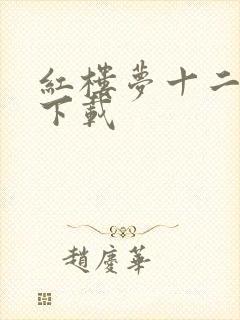 紅樓夢十二
下載
趙慶華